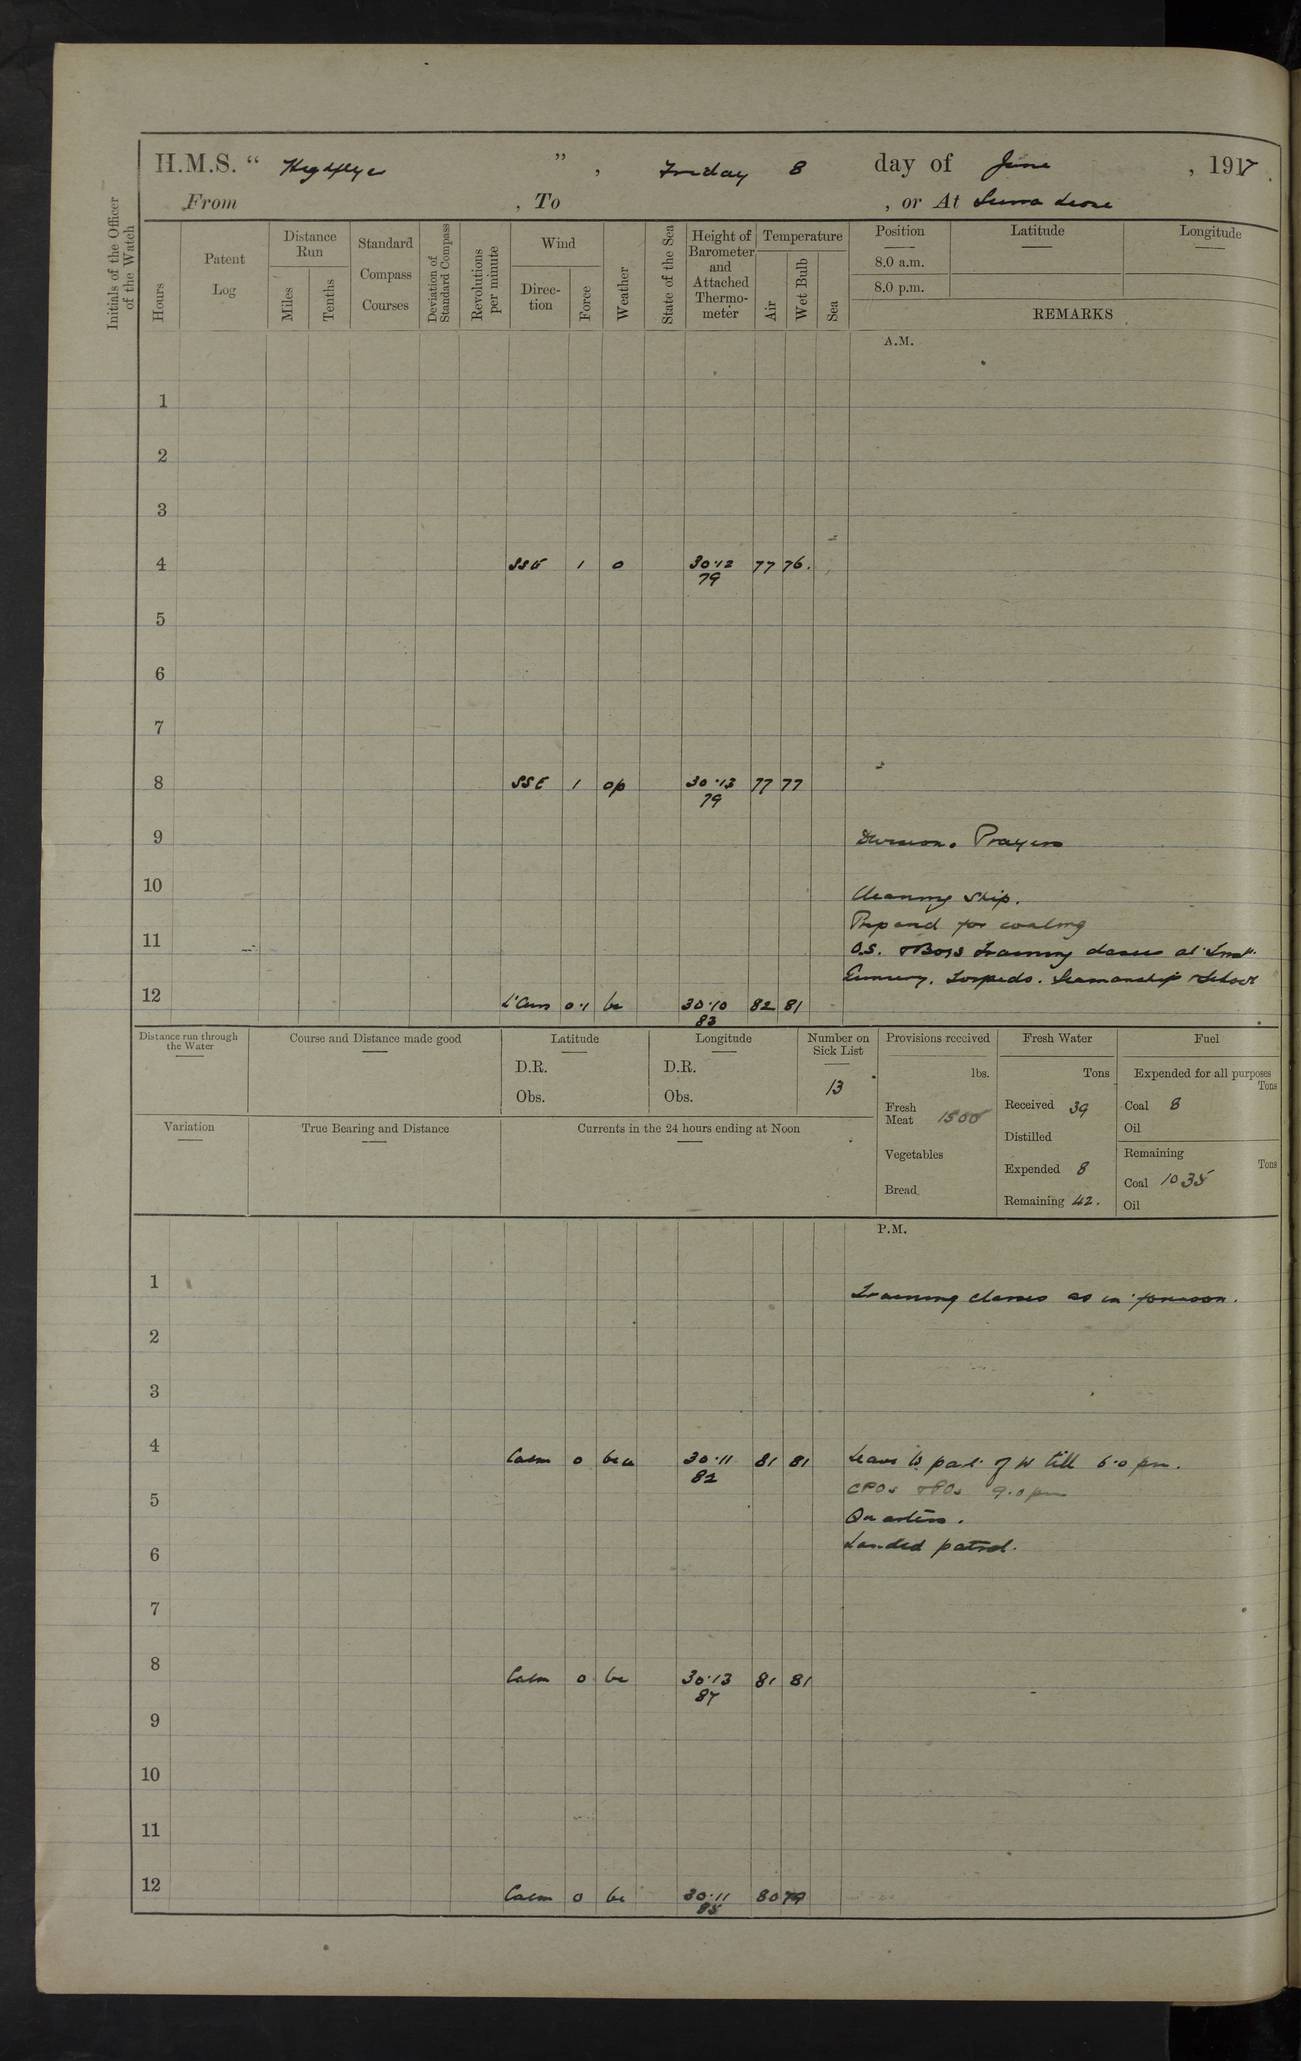 H.M.S. " Highflyer " , Friday 8 day of June , 1917.
From , To , or At Sierra Leone
Initials of the Officer of the Watch
Hours
Patent Log
Distance Run
Miles
Tenths
Standard Compass Courses
Deviation of Standard Compass
Revolutions per minute
Wind
Direction
Force
Weather
State of the Sea
Height of Barometer and Attached Thermometer
Temperature
Air
Wet Bulb
Sea
Position
8.0 a.m.
8.0 p.m.
Latitude
Longitude
REMARKS
A.M.
1
2
3
4 SSE 1 o 30.12 77 76.
79
5
6
7
8 SSE 1 op 30.13 77 77
79
9 Divisions. Prayers
10 Cleaning ship.
Prepared for coaling
11 O.S. & Boys Training classes at Inst.
Gunnery. Torpedo. Seamanship & School
12 L'airs 0.1 bc 30.10 82 81
83
Distance run through the Water
Course and Distance made good
Latitude
D.R.
Obs.
Longitude
D.R.
Obs.
Number on Sick List
13
Provisions received
lbs.
Fresh Meat 1500
Vegetables
Bread
Fresh Water
Tons
Received 39
Distilled
Expended 8
Remaining 42.
Fuel
Expended for all purposes
Tons
Coal 8
Oil
Remaining
Tons
Coal 1035
Oil
Variation
True Bearing and Distance
Currents in the 24 hours ending at Noon
P.M.
1 Training classes as in forenoon.
2
3
4 Calm 0 30.11 81 81 Leave to part of W till 6.0 pm.
82
CPOs & POs 9.0 pm
5 Quarters.
Landed patrol.
6
7
8 Calm 0 bc 30.13 81 81
9
10
11
12 Calm 0 bc 30.11 80 79
85